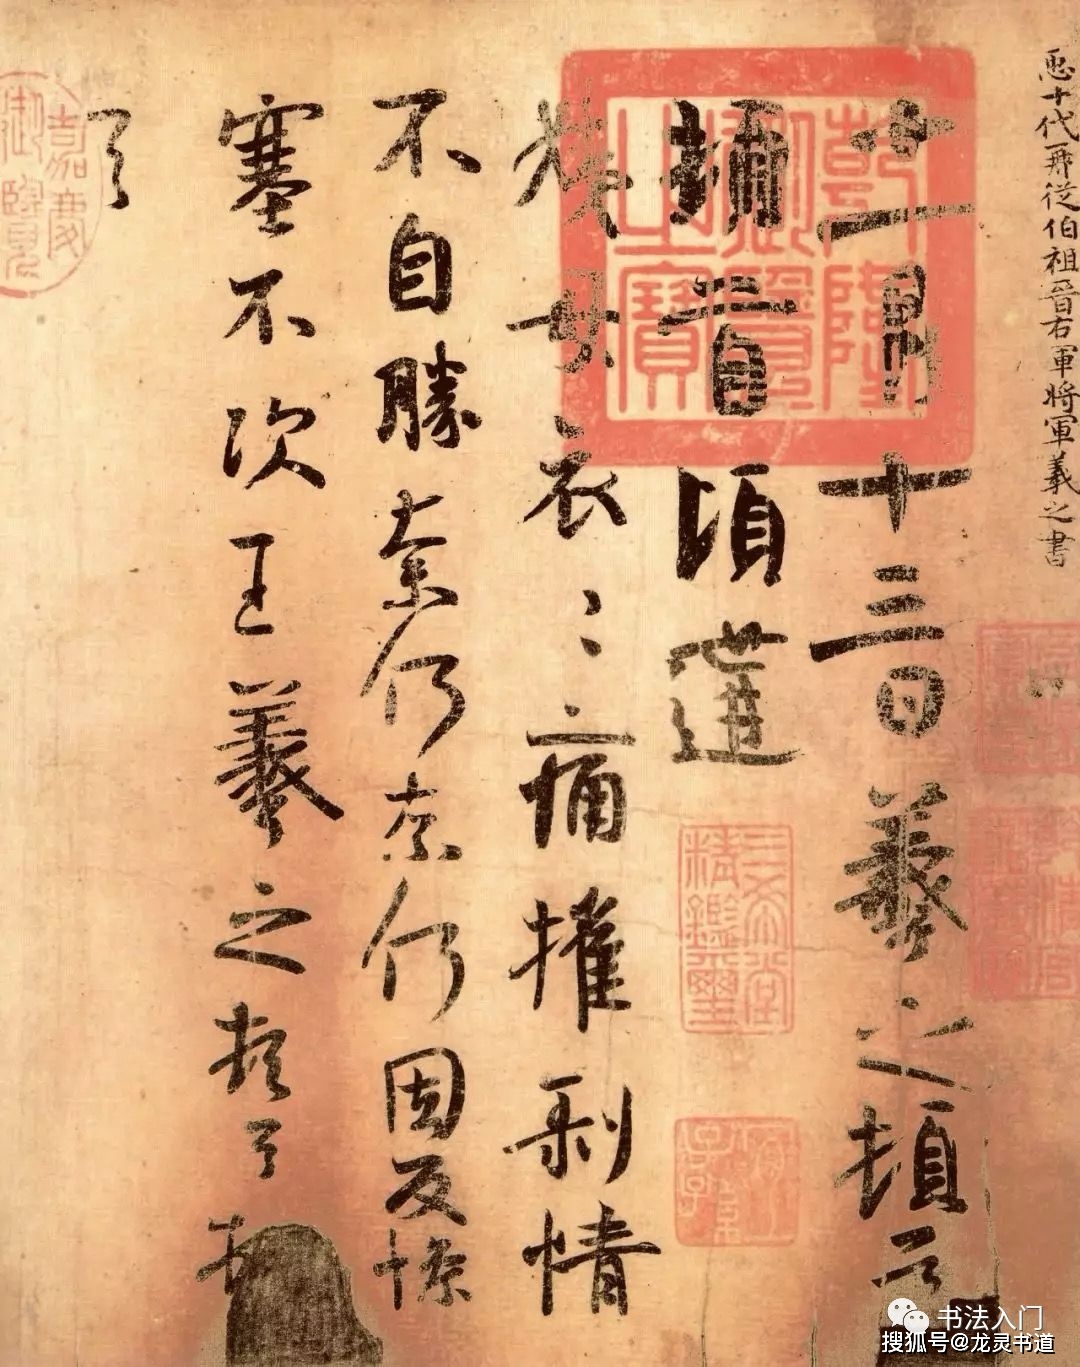 臣十代再從伯祖晉右軍將軍羲之書
十一月十三日羲之頓首
頓首頃遘
姨母哀〻痛摧剝情
不自勝奈何奈何因反慘
塞不次王羲之頓首頓
首
乾隆御覽之寶
嘉慶御覽
三希堂精鑑璽
宜子孫
书法入门
搜狐号@龙灵书道